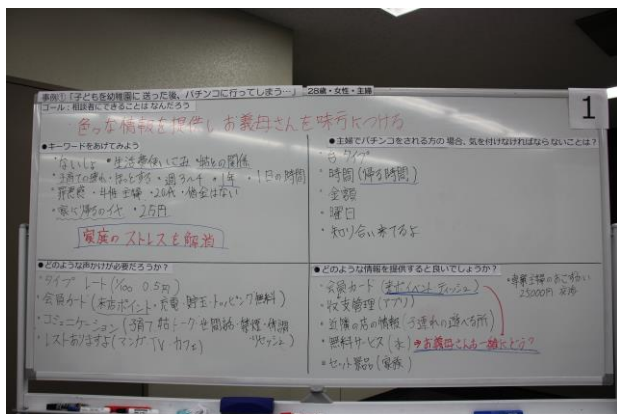 事例①「子どもを幼稚園に 送った後、パチンコに行ってしまう…」 28歳・女性・主婦
1
ゴール:相談者にできることは なんだろう
・色々な情報を提供しお義母さんを味方につける
●キーワードをあげてみよう
・ないしょ ・生活費使い込 ・姑との関係
・子育て疲れ・ほっとする ・週3~4 ・1年 ・1日の時間
・罪悪感 ・専業主婦 ・20代 ・借金はない
・家に帰るのイヤ ・2万円
家族のストレスを解消
●主婦でパチンコをされる方の 場合、気を付けなければならないことは?
・台タイプ
・時間(帰る時間)
・金額
・曜日
・知り合い来てるよ
●どのような声かけが必要だろうか?
・タイプ レート(1/100 0.5円)
・会員カード(来店ポイント・充電・貯玉・トッピング無料)
・コミュニケーション(子育て 姑トーク 世間話・禁煙・休調
リセッシュ)
・レストありますよ(マンガ TV カフェ)
●どのような情報を提供すると良いでしょうか?
・会員カード(来ポイベント・ティッシュ)
・収支管理(アプリ)
・近隣の店の情報(子連れの遊べる所)
・無料サービス(水) お義母さんも一緒にどう?
・セット景品(家族)
・専業主婦のおこづかい
25000円